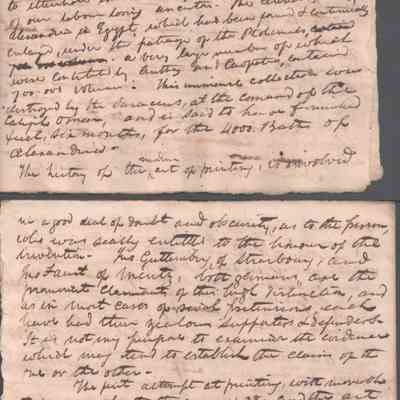 to
of our labour loving ancestors. The
Alexandria in Egypt, which had been found & continually
enlarged, under the patronage of the Ptolemies,
a very large number of which
were contributed by Anthony and Cleopatra, contained
700.000 volumes. This immense collection was
destroyed by the Saracens, at the command of the
Caliph Omar, and is said to have furnished
fuel, six months, for the 4000 Baths of
Alexandria.
The history of the modern art of printing, is involved
in a good deal of doubt and obscurity, as to the person
who was really entitled to the honour of the
invention. Jno Guttenburg of Strasbourg, and
Jno Faust of Mentz, both germans, are the
prominent claimants of this high distinction, and
as in most cases of rival pretensions each
have had their zealous supporters & defenders.
It is not my purpose to examine the evidence
which may tend to establish the claim of the
one or the other.
The first attempt at printing, with moveable
and the art